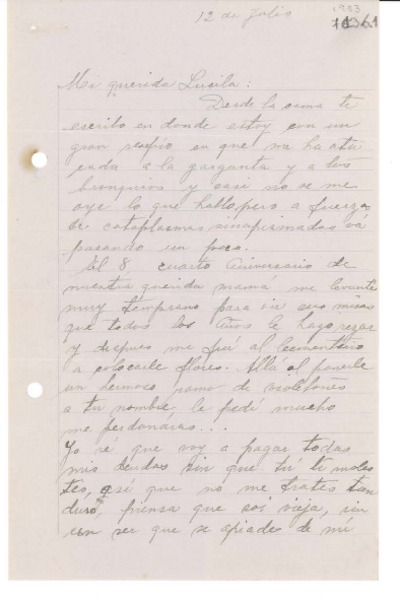 12 de Julio
1933
Mi querida Lucila:
Desde la cama te
escribo en donde estoy con un
gran resfrio en que me ha ata
cado a la garganta y a los
bronquios y casi no se me
oye lo que hablo, pero a fuerza
de cataplasmas sinapismadas vá
pasando un poco.
El 8 cuarto Aniversario de
nuestra querida mamá me levanté
muy temprano para ir a misa
que todos los Años le hago rezar
y despues me fuí al Cementerio
a colocarle flores. Allá al ponerle
un hermoso ramo de violetones
a tu nombre, le pedí mucho
me perdonáras...
Yo sé que voy a pagar todas
mis deudas sin que tú te moles
tes, así que no me trates tan
duro, piensa que soi vieja, sin
un ser que se apiade de mí